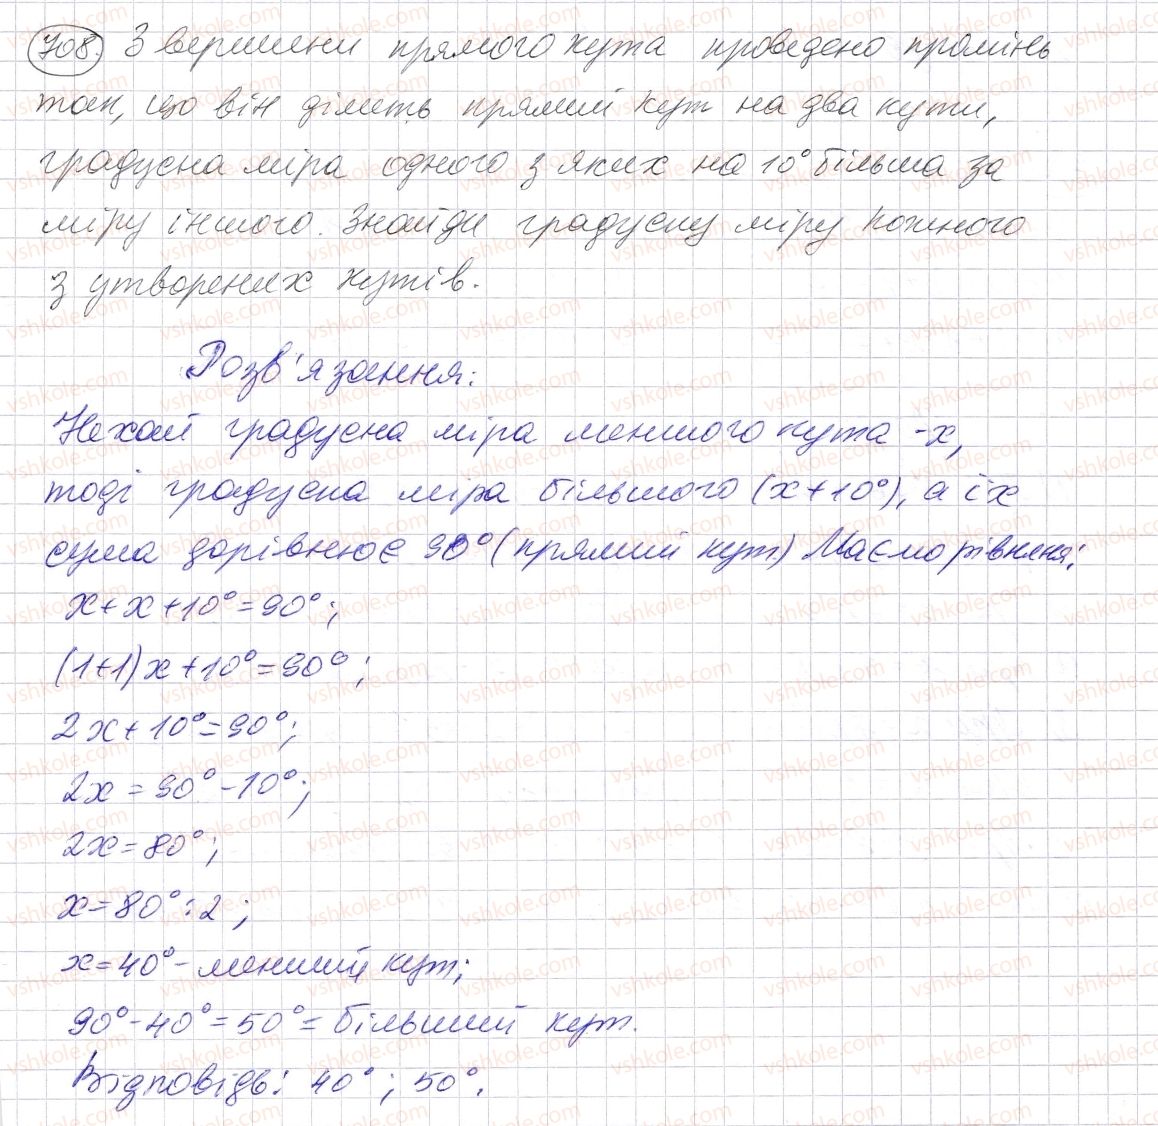 708. З вершини прямого кута проведено промінь
так, що він ділить прямий кут на два кути,
градусна міра одного з яких на 10° більша за
міру іншого. Знайди градусну міру кожного
з утворених кутів.
Розв'язання:
Нехай градусна міра меншого кута - x,
тоді градусна міра більшого (x+10°), а їх
сума дорівнює 90° (прямий кут) Маємо рівняня:
x+x+10°=90°;
(1+1)x+10°=90°;
2x+10°=90°;
2x=90°-10°;
2x=80°;
x=80°:2;
x=40°- менший кут;
90°-40°=50°= більший кут.
Відповідь: 40°; 50°.
vshkole.com